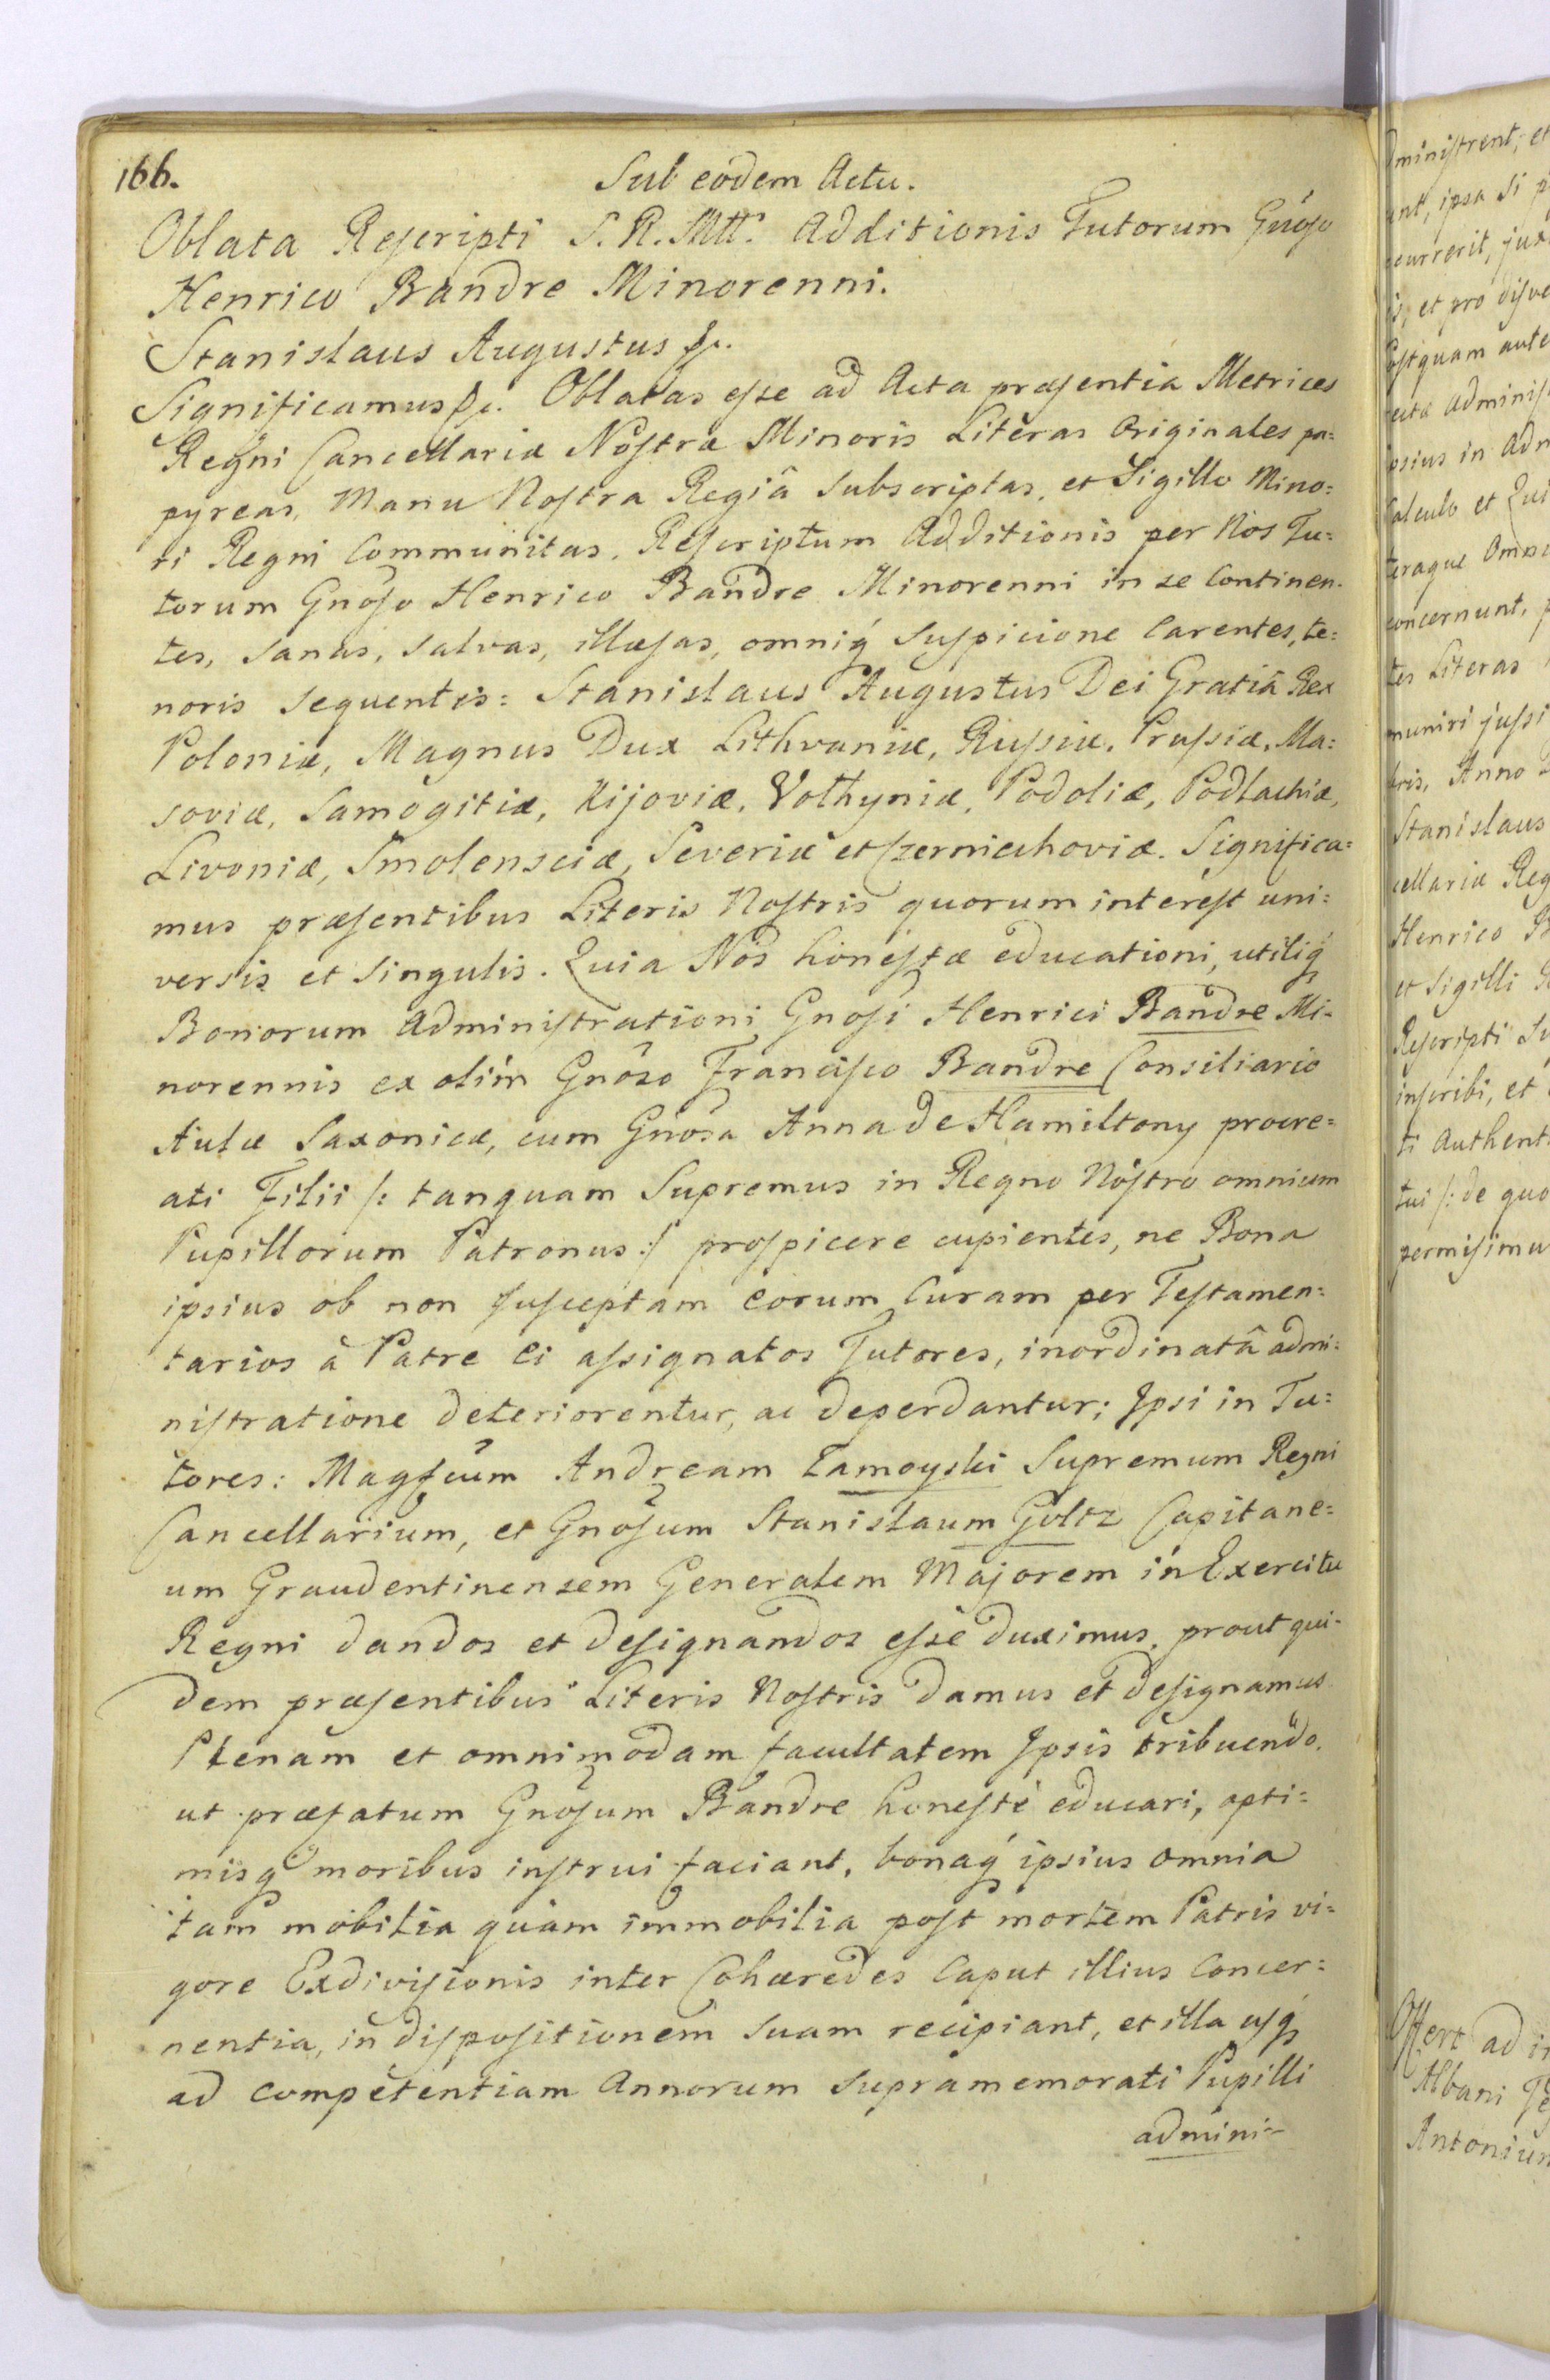 166.
Sub eodem Actu.
Oblata Rescripti S. R. Mtt. Additionis Tutorum Gnoso
Henrico Bandre Minorenni.
Stanislaus Augustus &c.
Significamus &c. Oblatas esse ad Acta præsentia Metrices
Regni Cancellariæ Nostræ Minoris Literas Originales pa=
pyreas, Manu Nostra Regiâ subscriptas, et Sigillo Mino=
ri Regni Communitas, Rescriptum Additionis per Nos Tu=
torum Gnoso Henrico Bandre Minorenni in se Continen=
tes, sanas, salvas, illæsas, omniq́ Suspicione Carentes, te=
noris sequentis: Stanislaus Augustus Dei Gratiâ Rex
Poloniæ, Magnus Dux Lithvaniæ, Russiæ, Prussiæ, Ma=
soviæ, Samogitiæ, Kijoviæ, Volhyniæ, Podoliæ, Podlachiæ,
Livoniæ, Smolensciæ, Severiæ et Czerniechoviæ. Significa=
mus præsentibus Literis Nostris quorum interest uni=
versis et singulis. Quia Nos honestæ educationi, utiliq́
Bonorum Administrationi Gnosi Henrici Bandre Mi=
norennis ex olim Gnoso Francisco Bandre Consiliario
Aulæ Saxonicæ, cum Gnosa Anna de Hamiltony procre=
ati Filii /: tanquam Supremus in Regno Nostro omnium
Pupillorum Patronus :/ prospicere cupientes, ne Bona
ipsius ob non susceptam eorum Curam per Testamen=
tarios à Patre Ei assignatos Tutores, inordinatâ admi=
nistratione deteriorentur, ac deperdantur; Ipsi in Tu=
tores: Magfcum Andream Zamoyski Supremum Regni
Cancellarium, et Gnosum Stanislaum Goltz Capitane=
um Graudentinensem Generalem Majorem in Exercitu
Regni dandos et designandos esse duximus, prout qui=
dem præsentibus Literis Nostris damus et designamus
Plenam et omnimodam facultatem Ipsis tribuendo,
ut præfatum Gnosum Bandre honestè educari, opti=
misq́ moribus instrui faciant, bonaq́ ipsius omnia
tam mobilia quàm immobilia post mortem Patris vi=
gore Exdivisionis inter Cohæredes Caput illius Concer=
nentia, in dispositionem suam recipiant, et illa usq́
ad competentiam Annorum supramemorati Pupilli
admini=
ministrent, et
ipsa si
et pro
postquam
Adminis
ipsius in Adm
Calculo et Qui
concernunt,
tes Literas
muniri jussi
Anno
Stanislaus
Reg
Henrico B
et Sigilli
Rescripti
inscribi, et
ti Authent
tui /: de quo
permisimu
Offert ad
Albani
Antonium